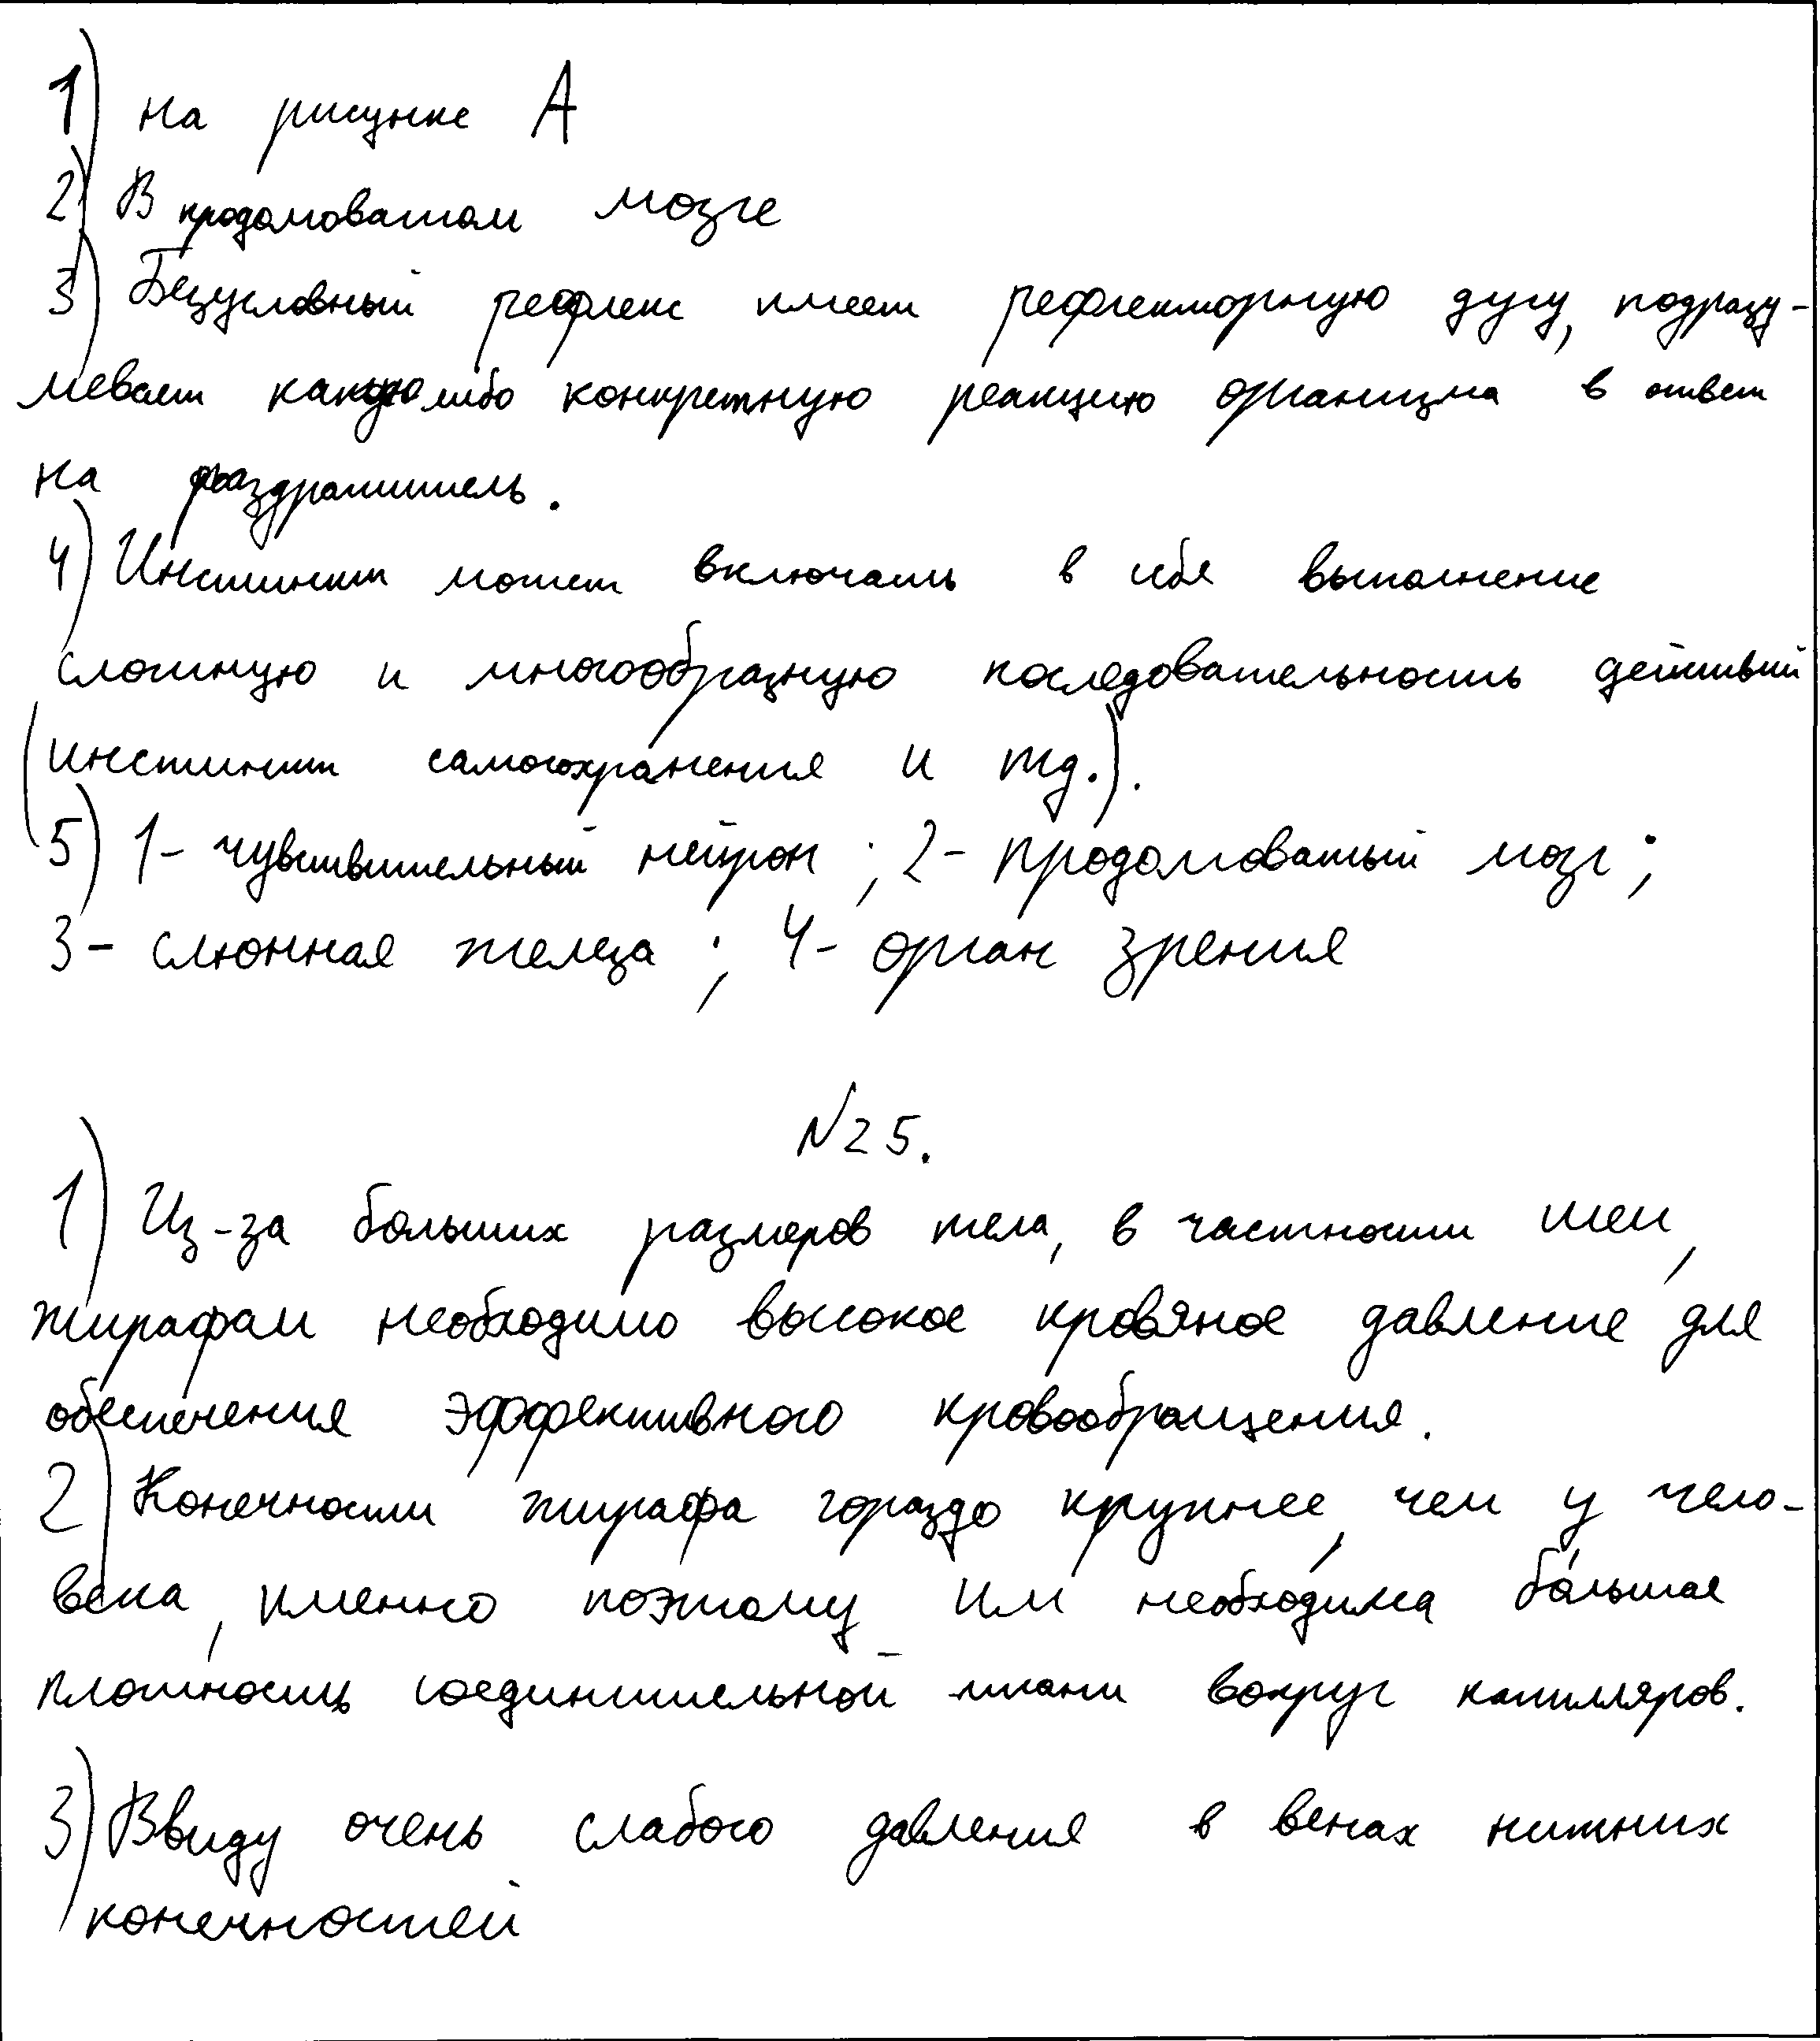 1) на рисунке А
2) В продолговатом мозге
3) Безусловный рефлекс имеет рефлекторную дугу, подразу-
мевает какую либо конкретную реакцию организма в ответ
на раздражитель.
4) Инстинкт может включать в себя выполнение
сложную и многообразную последовательность действий
(инстинкт самосохранения и тд.).
5) 1- чувствительный нейрон ; 2- продолговатый мозг ;
3- слюнная железа ; 4- орган зрения
№25.
1) Из-за больших размеров тела, в частности шеи,
жирафам необходимо высокое кровяное давление для
обеспечения эффективного кровообращения.
2) Конечности жирафа гораздо крупнее, чем у чело-
века, именно поэтому им необходима большая
плотность соединительной ткани вокруг капилляров.
3) Ввиду очень слабого давления в венах нижних
конечностей